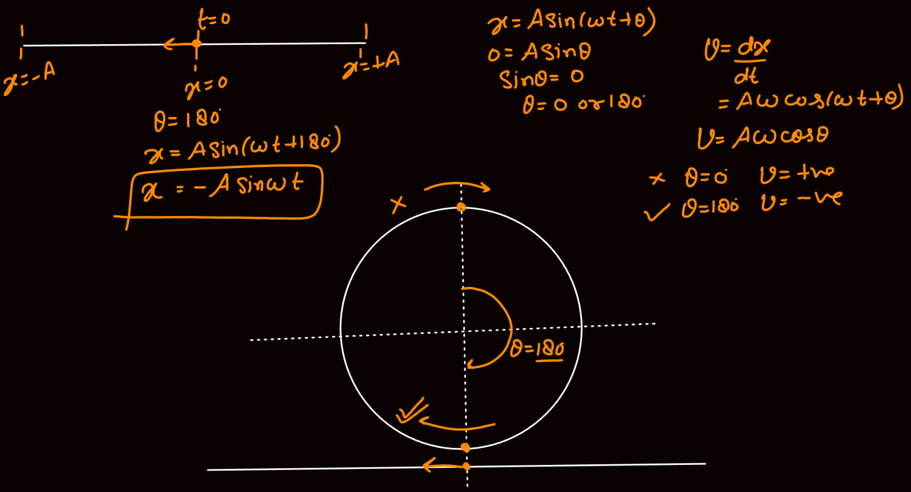 t=0
x=-A
x=0
x=+A
θ=180°
x=Asin(ωt+180°)
x = -A sinωt
x=Asin(ωt+θ)
0=Asinθ
Sinθ=0
θ=0 or 180°
v=dx/dt
=Aωcos(ωt+θ)
v=Aωcosθ
× θ=0° v=+ve
✓ θ=180° v=-ve
×
θ=180°
✓